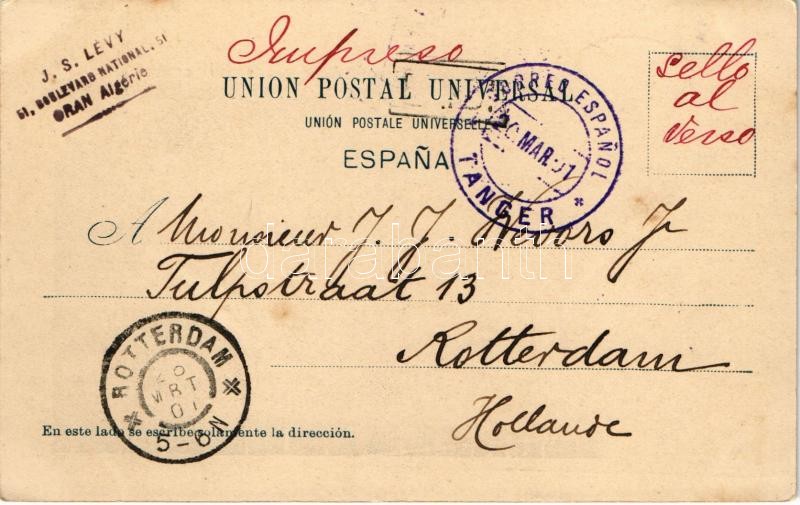 J. S. LÉVY
51, BOULEVARD NATIONAL, 51
ORAN Algérie
Impreso
sello
al
verso
UNION POSTAL UNIVERSAL
UNIÓN POSTALE UNIVERSELLE
ESPAÑA
CORREO ESPAÑOL
MAR. 01
TANGER
A Monsieur J. J. Jr
Tulpstraat 13
Rotterdam
Hollande
ROTTERDAM
MRT
01
5-6N
En este lado se escribe solamente la dirección.
darabanth